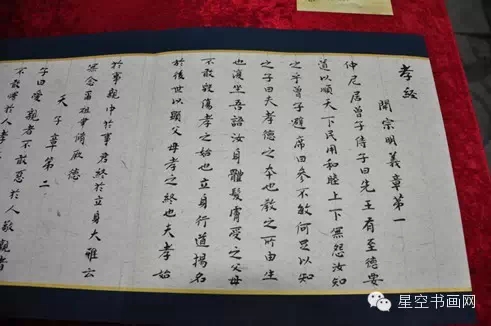 孝經
開宗明義章第一
仲尼居曾子侍子曰先王有至德要
道以順天下民用和睦上下無怨汝知
之乎曾子避席曰參不敏何足以知
之子曰夫孝德之本也教之所由生
也復坐吾語汝身體髮膚受之父母
不敢毀傷孝之始也立身行道揚名
於後世以顯父母孝之終也夫孝始
於事親中於事君終於立身大雅云
無念爾祖聿脩厥德
天子章第二
子曰愛親者不敢惡於人敬親者
不敢慢於人
星空书画网